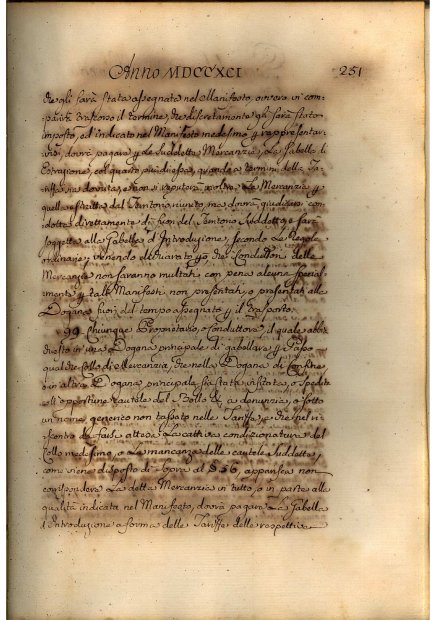 Anno MDCCXCI 251
che gli sarà stata assegnata nel Manifesto, ovvero vi com-
parirà trascorso il termine, che discretamente gli sarà stato
imposto, ed indicato nel Manifesto medesimo per rappresentar-
visi, dovrà pagare per le suddette Mercanzie, la Gabella di
Estrazione, col quarto più di essa, quando a termini della Ta-
riffa sia dovuta, e non si reputerà la Mercanzia per
quell' estratta dal Territorio riunito, ma dovrà giudicarsi con-
dotta direttamente di fuori del Territorio Suddetto, e sarà
soggetta alla Gabella d'Introduzione, secondo le Regole
ordinarie, venendo dichiarato che i Conduttori delle
Mercanzie non saranno multati con pena alcuna special-
mente per tali Manifesti non presentati, o presentati alle
Dogane fuori del tempo assegnato per il trasporto.
99. Chiunque Proprietario, o conduttore, il quale abbia
chiesto in una Dogana principale di gabellare per
qualche Collo di Mercanzia, che nella Dogana di Confine,
o in altra Dogana principale, sia stata visitata, o spedita
colle opportune cautele del Bollo & a denunzia, o sotto
un nome generico non tassato nelle Tariffe, e che nel ri-
scontro da farsi attesa la cattiva condizionatura del
Collo medesimo, o la mancanza delle cautele Suddette,
come viene disposto di sopra al § 56, apparisca non
corrispondere la detta Mercanzia in tutto, o in parte alla
qualità indicata nel Manifesto, dovrà pagare la Gabella
d'Introduzione a forma delle Tariffe delle respettive